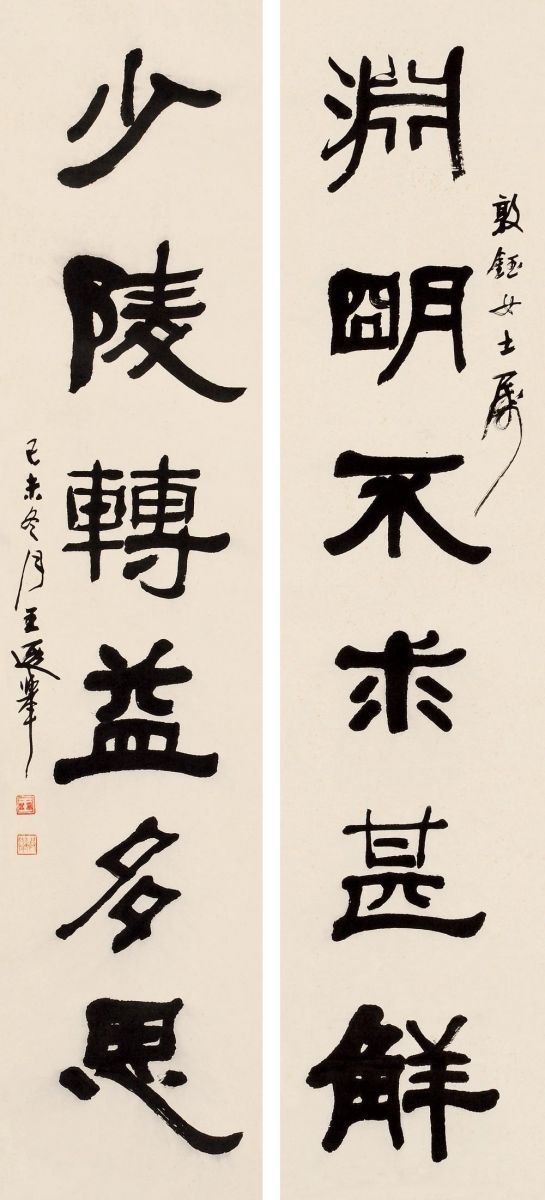 淵明不求甚解
敦鈺女士屬
少陵轉益多思
己未冬月王遐舉